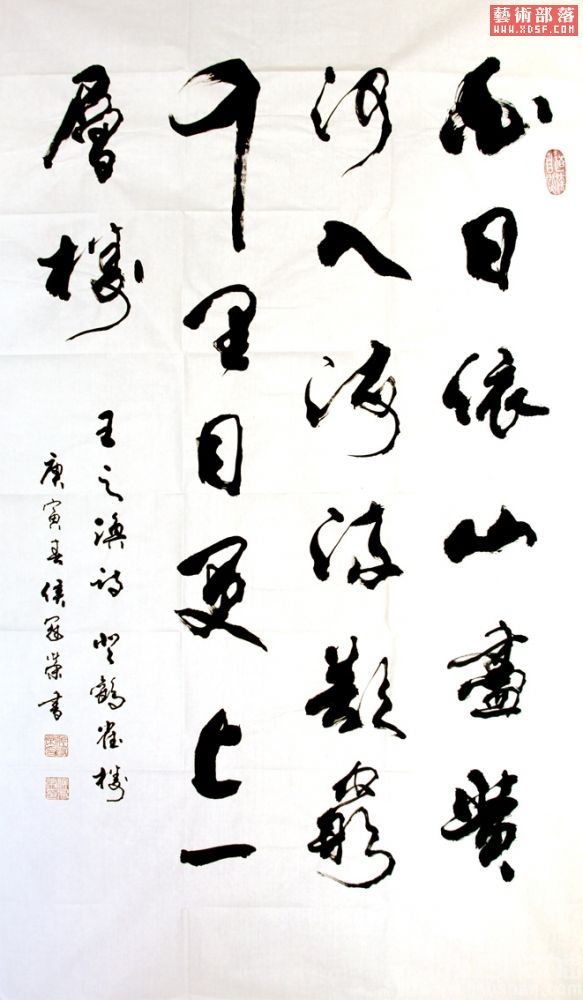 藝術部落
WWW.XDSF.COM
白日依山盡黄
河入海流欲窮
千里目更上一
層樓
王之渙詩登鶴雀樓
庚寅春侯冠荣書